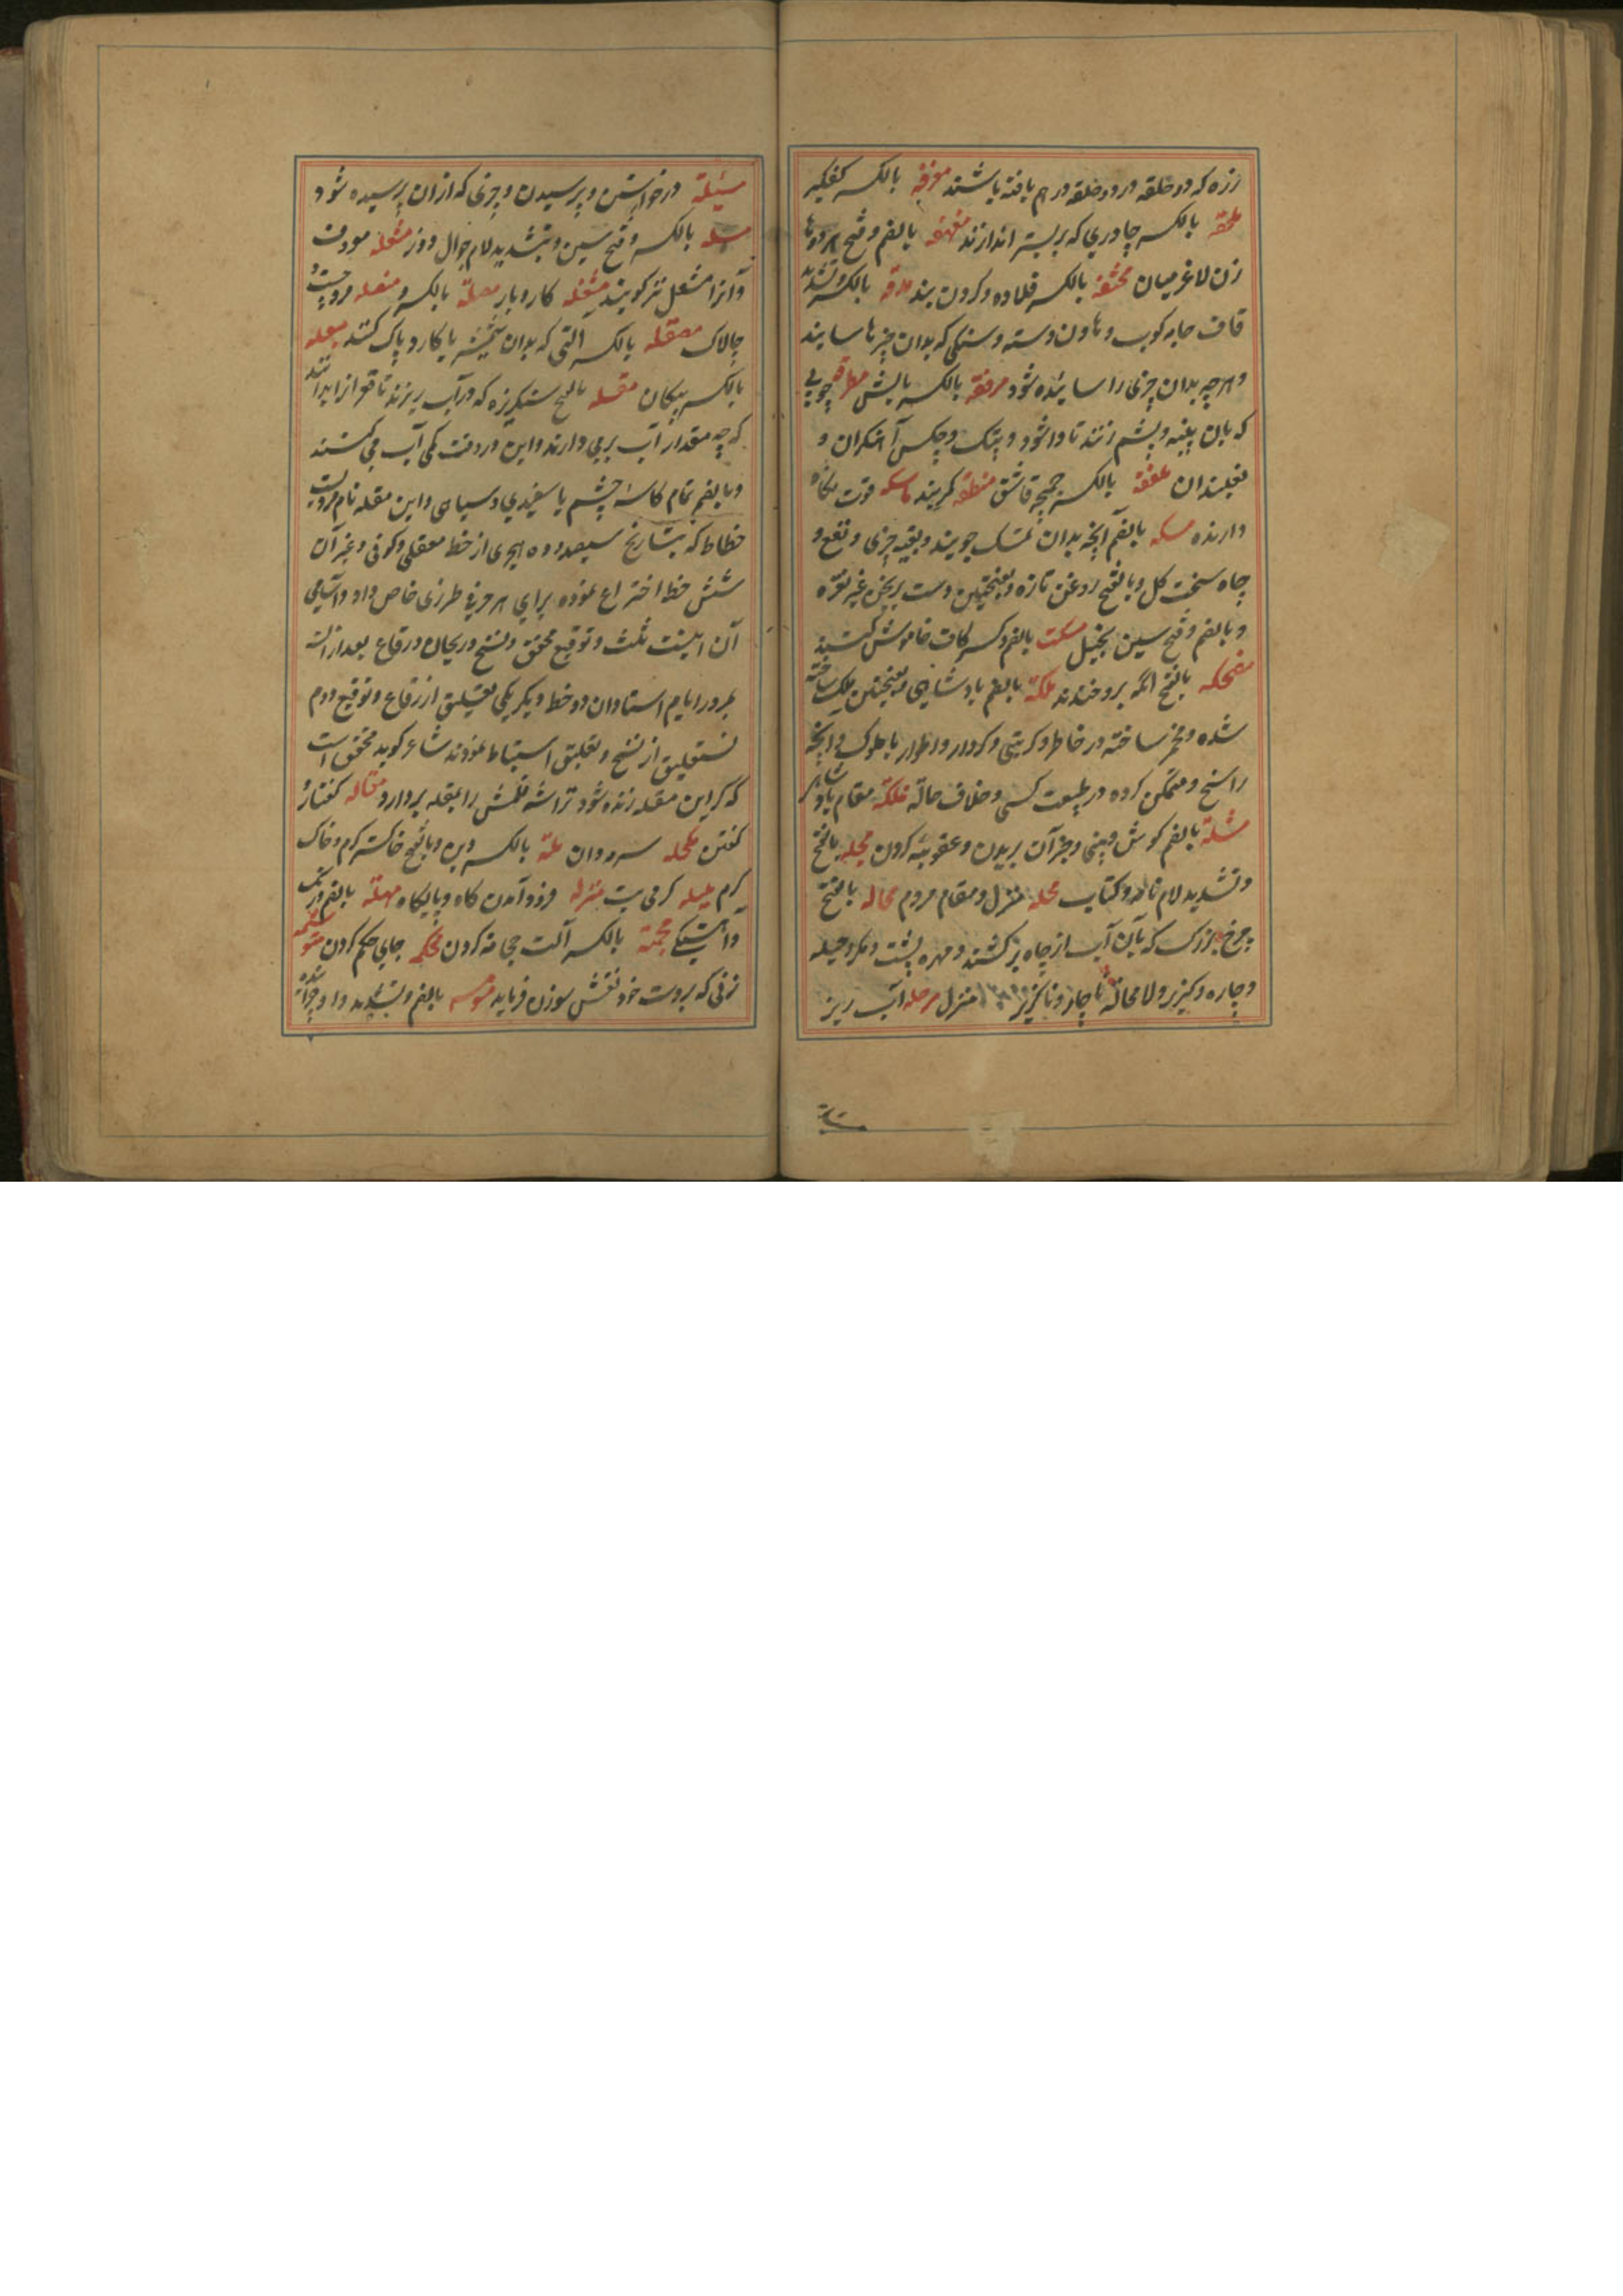 زره که دو حلقه در دو حلقه در هم بافته باشند مغرفه بالکسر کفکیر
ملحفه بالکسر چادری که بر بستر اندازند مهفهفه بالضم و فتح هر دو ها
زن لاغر میان مخنقه بالکسر قلاده و گردن بند مدقه بالکسر و تشدید
قاف جامه کوب و هاون دسته و سنگی که بدان چیزها سایند
و هر چه بدان چیزی را سائیده شود مرفقه بالکسر بالش مطرقه چوبی
که بان پنبه و پشم زنند تا وا شود و پتک و چکس آهنگران و
نعلبندان ملعقه بالکسر چمچه قاشق منطقه کمربند ماسکه قوت نگاه
دارنده مسکه بالضم آنچه بدان تمسک جویند و بقیه چیزی و نفع و
چاه سخت گل و بالفتح روغن تازه و بفتحتین دست برنجن غیر نقره
و بالضم و فتح سین بخیل مسکت بالضم و کسر کاف خاموش کننده
مضحکه بالفتح آنکه برو خندند ملکة بالضم پادشاهی و بفتحتین ملک ساخته
شده و مخمر ساخته در خاطر و کردار و اطوار با ملوک و آنچه
راسخ و متمکن کرده در طبیعت کسی و خلاف حالة مملکة مقام پادشاهی
مثلة بالضم گوش و بینی و جز آن بریدن و عقوبت کردن مجله بالفتح
و تشدید لام نامه و کتاب محله منزل و مقام مردم محاله بالفتح
چرخ بزرگ که بان آب از چاه بر کشند و مهره پشت و مکر و حیله
و چاره و گزیر و لا محاله ناچار و ناگزیر منزل مرحله آب ریز
مسئلة درخواستن و پرسیدن و چیزی که از آن پرسیده شود
مسله بالکسر و فتح سین و تشدید لام جوال دوز مشعله معروف
و آنرا مشعل نیز گویند مشغله کار و بار بالکسر مرد چست و
چالاک مصقله بالکسر آلتی که بدان شمشیر یا کارد پاک کنند معبله
بالکسر پیکان مقله بالفتح سنگریزه که در آب ریزند تا قعر از ا بدانند
که چه مقدار آب بر می دارند و این در وقت کمی آب می کنند
و بالضم تمام کاسۀ چشم با سفیدی و سیاهی و ابن مقله نام مردیست
خطاط که بتاریخ سیصد و ده هجری از خط معقلی و کوفی و غیر آن
شش خط اختراع نموده برای هر حرفی طرزی خاص داد و اسامی
آن اینست ثلث و توقیع محقق و نسخ و ریحان و رقاع بعد از آن
بمرور ایام استادان دو خط دیگر یکی تعلیق از رقاع و توقیع دوم
نستعلیق از نسخ و تعلیق استنباط نمودند شاعر گوید محقق است
که گر ابن مقله زنده شود تراشه قلمش را بمقله بردارد مقاله گفتار و
گفتن مکحله سرمه دان ملة بالکسر دین و بالفتح خاکستر گرم و خاک
گرم ملیله گرمی تب منزله فرود آمدن گاه و پایگاه مهلة بالضم درنگ
و آهستگی محجمة بالکسر آلت حجامت کردن محکمه جای حکم کردن
زنی که بر دست خود نقش سوزن فرماید موسومه بالضم و تشدید واو